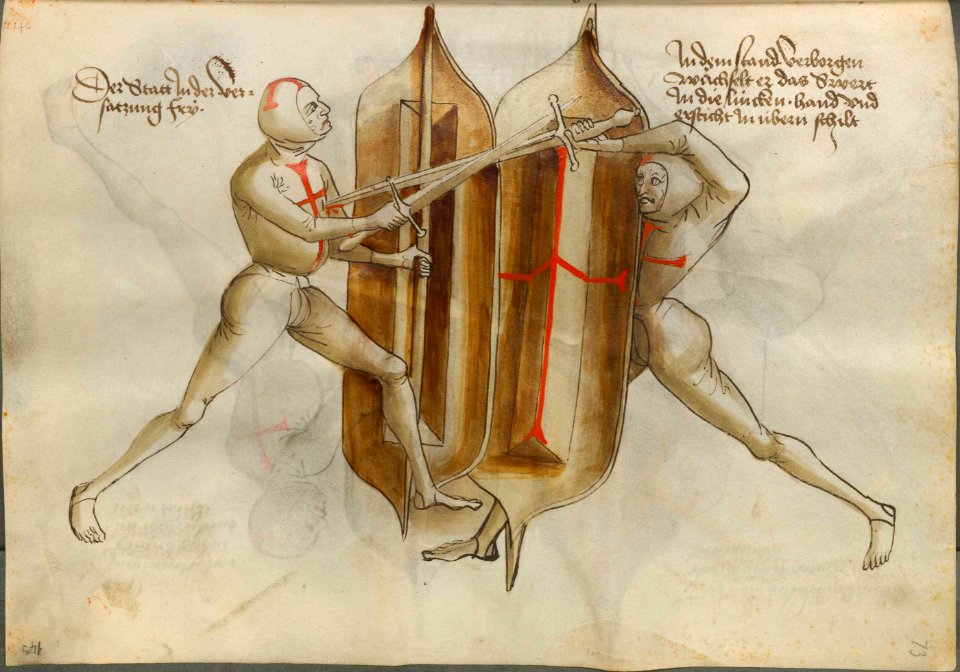 Der Statt In der Ver-
satzung frӱ.
In dem stand Verborgen
wüchselt er das Swert
In die lincken. hand vnd
ersticht In übern schilt
73